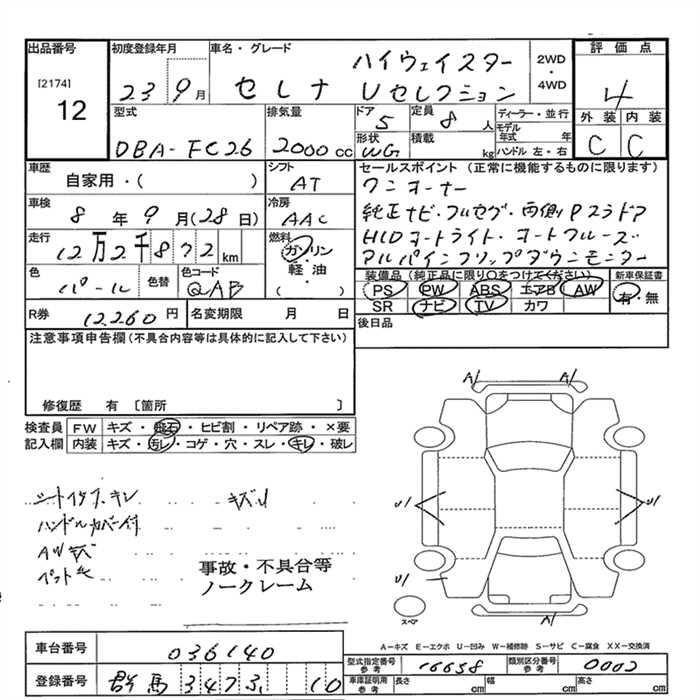 出品番号 初度登録年月 車名・グレード 評価点
[2174]
12
23 9月 セレナ ハイウェイスター
Vセレクション 2WD・4WD 4
型式 排気量 ドア 定員 ディーラー・並行 外装 内装
DBA-FC26 2000cc 5 8人 モデル年式 年 C C
形状 積載 ハンドル 左・右
WG kg
車歴 シフト セールスポイント(正常に機能するものに限ります)
自家用・( ) AT ワンオーナー
車検 冷房 純正ナビ・フルセグ・両側Pスラドア
8年9月(28日) AAC HIDオートライト・オートクルーズ
走行 燃料 アルパインフリップダウンモニター
12万2千872km ガソリン・軽油( )
色 色替 色コード 装備品(純正品に限り○をつけてください) 新車保証書
パール QAB PS PW ABS エアB AW 有・無
SR ナビ TV カワ
R券 12,260円 名変期限 月 日 後日品
注意事項申告欄(不具合内容等は具体的に記入して下さい)
修復歴 有 〔箇所 〕
検査員 FW キズ・飛石・ヒビ割・リペア跡・×要
記入欄 内装 キズ・汚レ・コゲ・穴・スレ・キレ・破レ
A1 A1
シートイタフ.キレ キズU
ハンドルカバー付
AWキズ
U1 U1
U1
事故・不具合等
ノークレーム
スペア
A-キズ E-エクボ U-凹み W-補修跡 S-サビ C-腐食 XX-交換済
車台番号 036140
登録番号 群馬 347 10
型式指定番号 参考 16658 類別区分番号 参考 0002
車庫証明用 参考 長さ cm 幅 cm 高さ cm